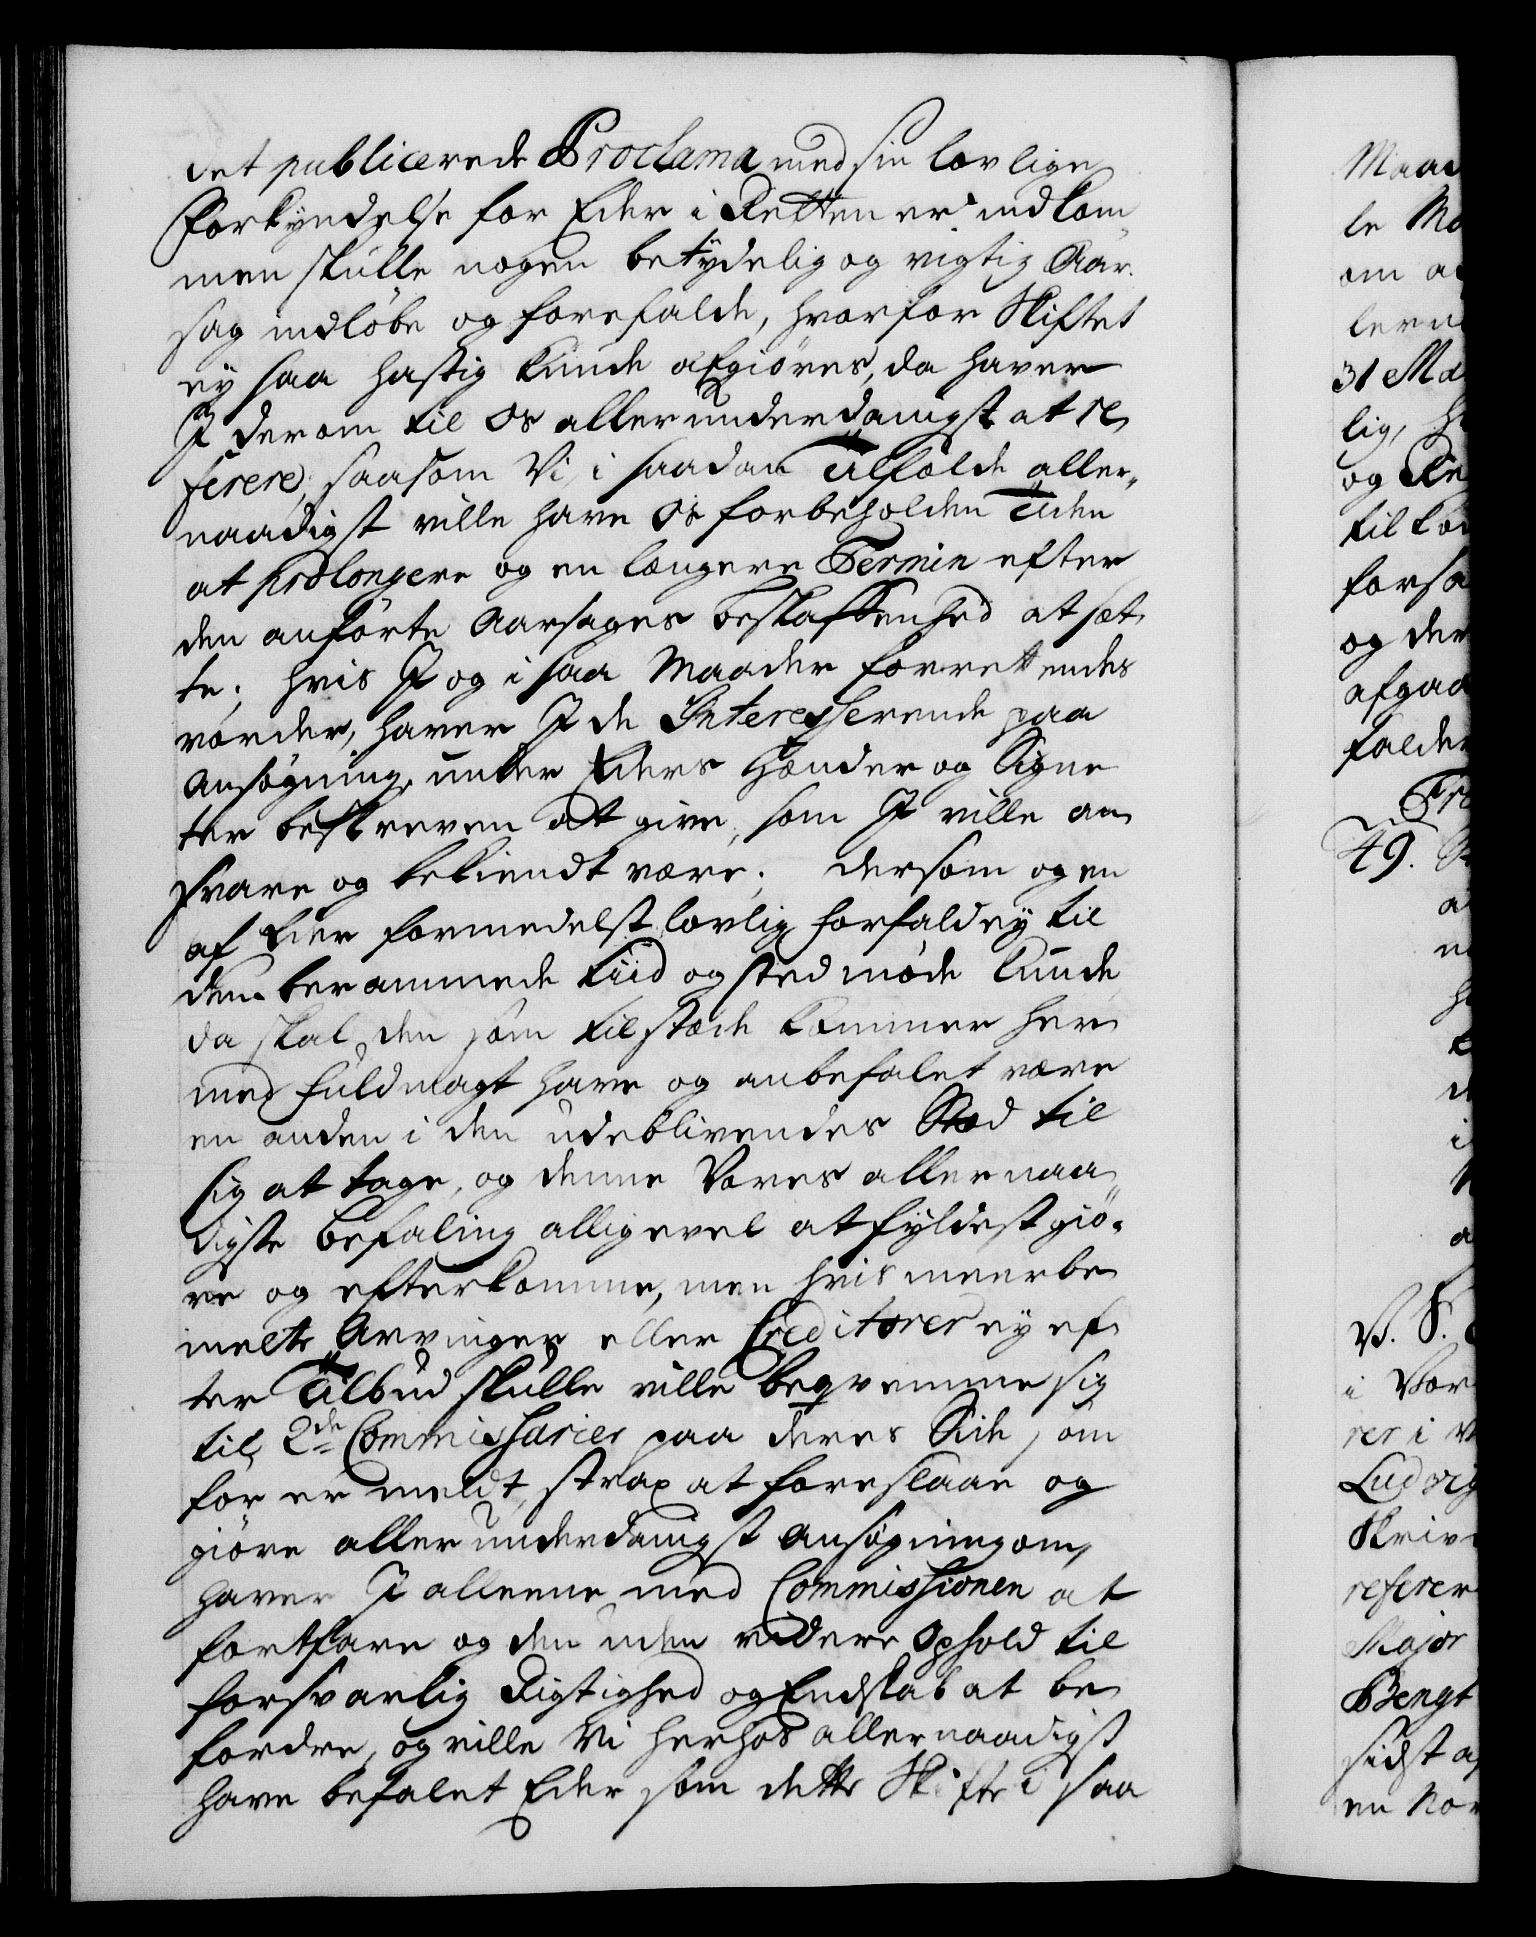 det publicerede Proclama med sin lovlige
Forkyndelse for Eder i Retten er indkom
men skulle nogen betydelig og vigtig Aar-
sag indløbe og forefalde, hvorfor Skiftet
ej saa hastig kunde afgiøres, da haver
I derom til Os allerunderdanigst at re
ferere, saasom Vi i saadan Tilfælde aller-
naadigst ville have Os forbeholden Tiden
at prolongere og en længere Termin efter
den anførte Aarsages beskaffenhed at sæt
te; hvis I og i saa Maader forrettendes
vorder, haver I de Interesserende paa
Ansøgning under Eders Hænder og Signe
ter beskreven at give, som I ville an
svare og bekiendt være; dersom og en
af Eder formedelst lovlig forfald ej til
den berammede Tiid og sted møde kunde
da skal den som tilstæde kommer her
med fuldmagt have og anbefalet være
en anden i den udeblivendes Stæd til
sig at tage, og denne Vores allernaa
digste befaling alligevel at fyldestgiø-
re og efterkomme, men hvis meerbe
melte Arvinger eller Creditorer ej ef
ter Tilbud skulle ville beqvemme sig
til 2de Commissarier paa deres Side som
før er meldt, strax at foreslaae og
giøre allerunderdanigst Ansøgning om,
haver I alleene med Commissionen at
fortfare og den uden videre Ophold til
forsvarlig Rigtighed og Endskab at be
fordre, og ville Vi herhos allernaadigst
have befalet Eder som dette Skifte i saa
Maad
om a
31 Ma
lig, h
og Re
forsa
og der
afgaa
falde
Fr
49.
V. S.
i Vor
rer i
Ludvig
Skriv
referer
Major
Bengt
sidst a
en Nor